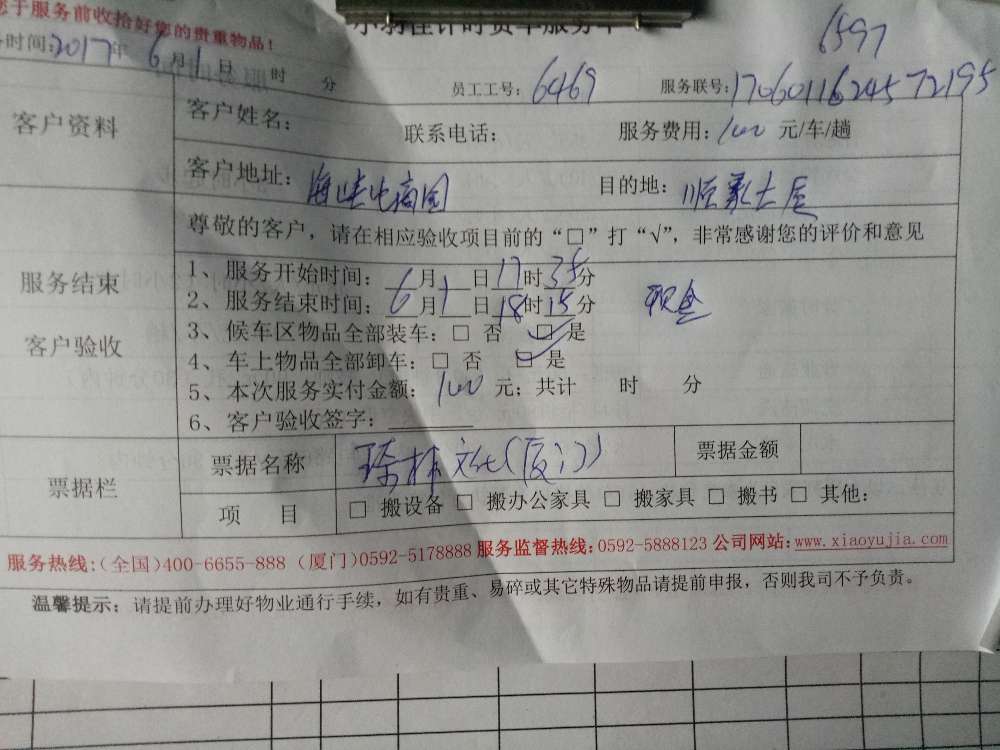 您于服务前收拾好您的贵重物品!
务时间:2017年 6月1日 时 分
6597
员工工号: 6469 服务联号: 1706011624572195
客户资料
客户姓名: 联系电话: 服务费用: 100 元/车/趟
客户地址: 海峡电商园 目的地:
尊敬的客户,请在相应验收项目前的“□”打“√”,非常感谢您的评价和意见
服务结束
客户验收
1、服务开始时间: 6月1日17时35分
2、服务结束时间: 6月1日18时15分 现金
3、候车区物品全部装车: □ 否 □ 是
4、车上物品全部卸车: □ 否 □ 是
5、本次服务实付金额: 100 元; 共计 时 分
6、客户验收签字:
票据栏
票据名称 文化(厦门) 票据金额
项 目 □ 搬设备 □ 搬办公家具 □ 搬家具 □ 搬书 □ 其他:
服务热线:(全国)400-6655-888 (厦门)0592-5178888 服务监督热线:0592-5888123 公司网站:www.xiaoyujia.com
温馨提示: 请提前办理好物业通行手续,如有贵重、易碎或其它特殊物品请提前申报,否则我司不予负责。